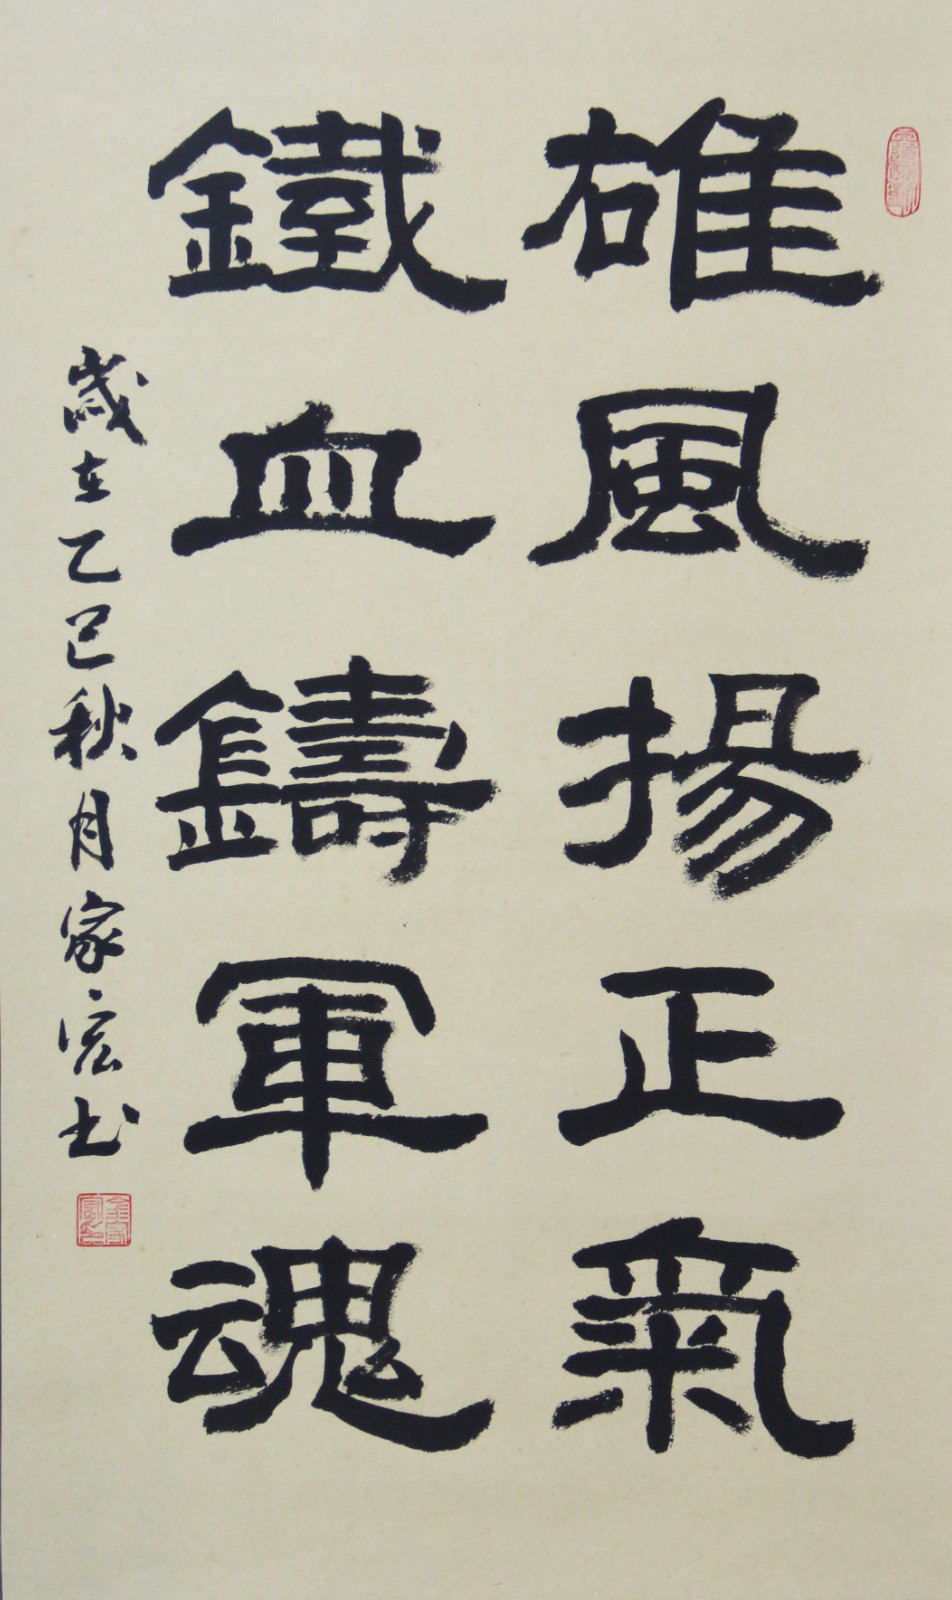 雄風揚正氣
鐵血鑄軍魂
歲在乙巳秋月家宏书